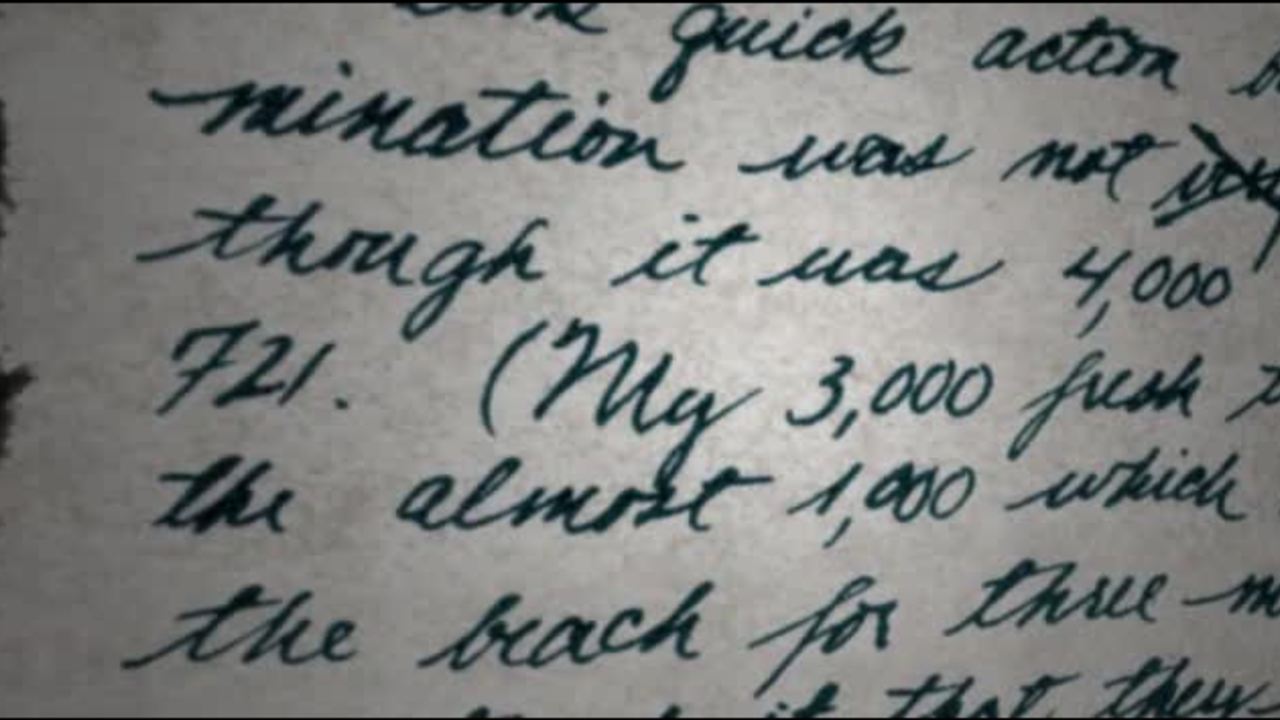 quick action
mination was not
though it was 4,000
721. (My 3,000 fresh
the almost 1,000 which
the beach for three
it that they